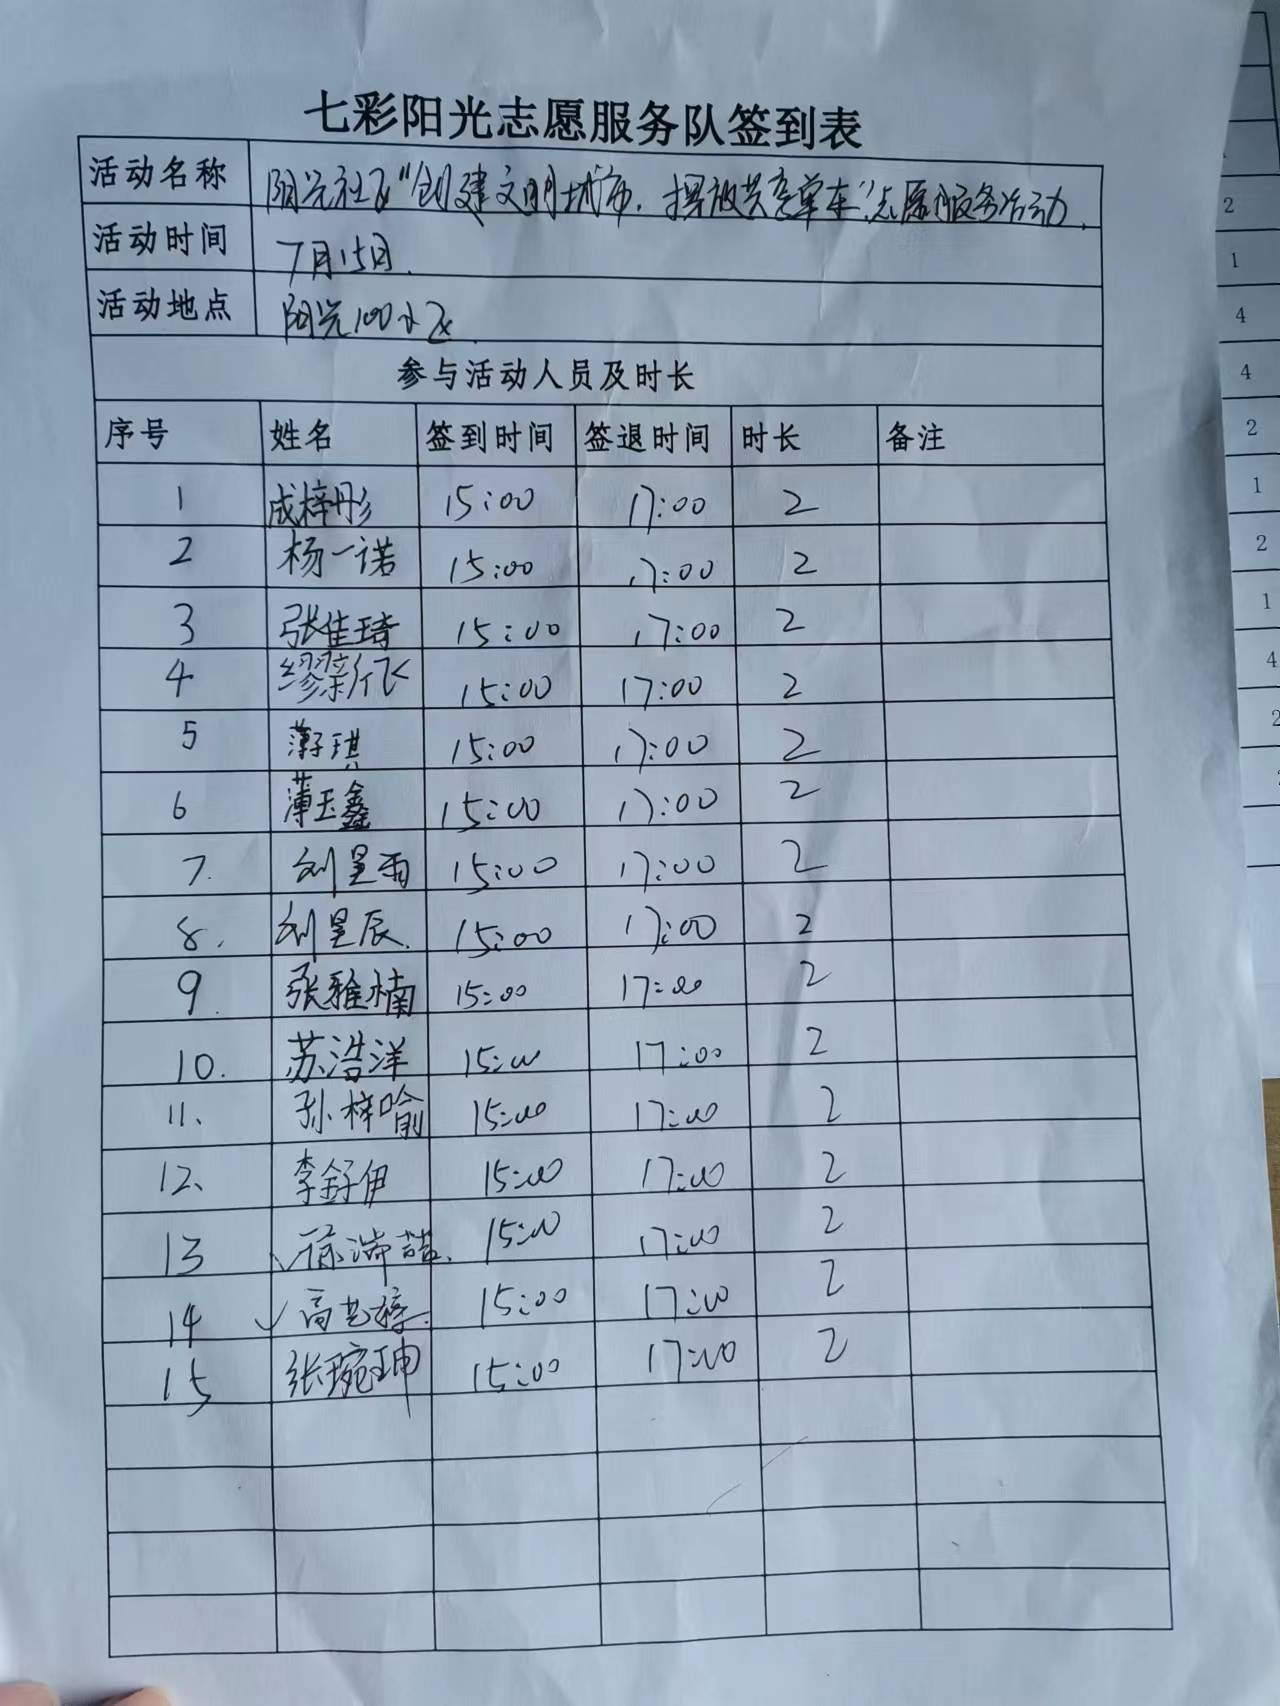 七彩阳光志愿服务队签到表
活动名称 阳光社区“创建文明城市，摆放共享单车”志愿服务活动.
活动时间 7月15日.
活动地点 阳光100小区.
参与活动人员及时长
序号 姓名 签到时间 签退时间 时长 备注
1 成梓彤 15:00 17:00 2
2 杨一诺 15:00 17:00 2
3 张佳琦 15:00 17:00 2
4 缪新飞 15:00 17:00 2
5 薄子琪 15:00 17:00 2
6 薄玉鑫 15:00 17:00 2
7. 刘星雨 15:00 17:00 2
8. 刘星辰. 15:00 17:00 2
9. 张雅楠 15:00 17:00 2
10. 苏浩洋 15:00 17:00 2
11、 孙梓喻 15:00 17:00 2
12、 李舒伊 15:00 17:00 2
13 ✓徐 15:00 17:00 2
14 ✓高艺 15:00 17:00 2
15 张琬珅 15:00 17:00 2
2
1
4
4
2
1
2
1
4
2